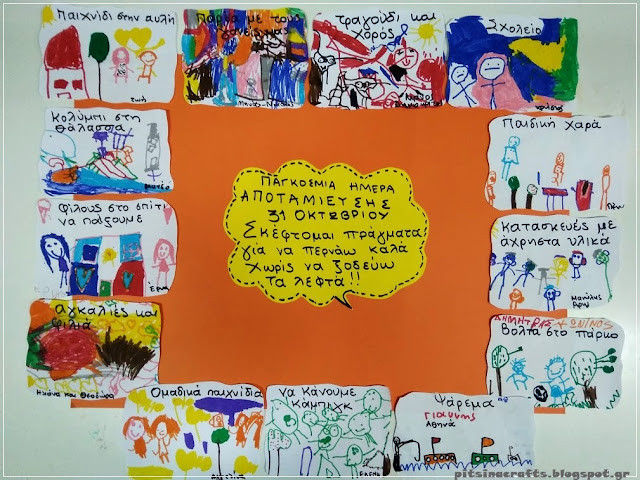 Παιχνίδι στην αυλή
Ζωή
Πάρκα με τους
γονείς μας
Τραγούδι και
Χορός
Σχολείο
Κολύμπι στη
θάλασσα
Παιδική Χαρά
Φίλους στο σπίτι
να παίξουμε
Κατασκευές με
άχρηστα υλικά
Μανώλης
Άρης
ΠΑΓΚΟΣΜΙΑ ΗΜΕΡΑ
ΑΠΟΤΑΜΙΕΥΣΗΣ
31 ΟΚΤΩΒΡΙΟΥ
Σκέφτομαι πράγματα
για να περνάω καλά
Χωρίς να ξοδεύω
τα λεφτά!!
Αγκαλιές και
φιλιά
Ηλιάνα και Θεοδώρα
ΔΗΜΗΤΡΗΣ + ΩΝΙΝΟΣ
Βόλτα στο πάρκο
Ομαδικά παιχνίδια
να κάνουμε
Κάμπινγκ
ΕΛΕΝΗ
Ψάρεμα
ΓΙΑΝΝΗΣ
Αθηνά
pitsinacrafts.blogspot.gr